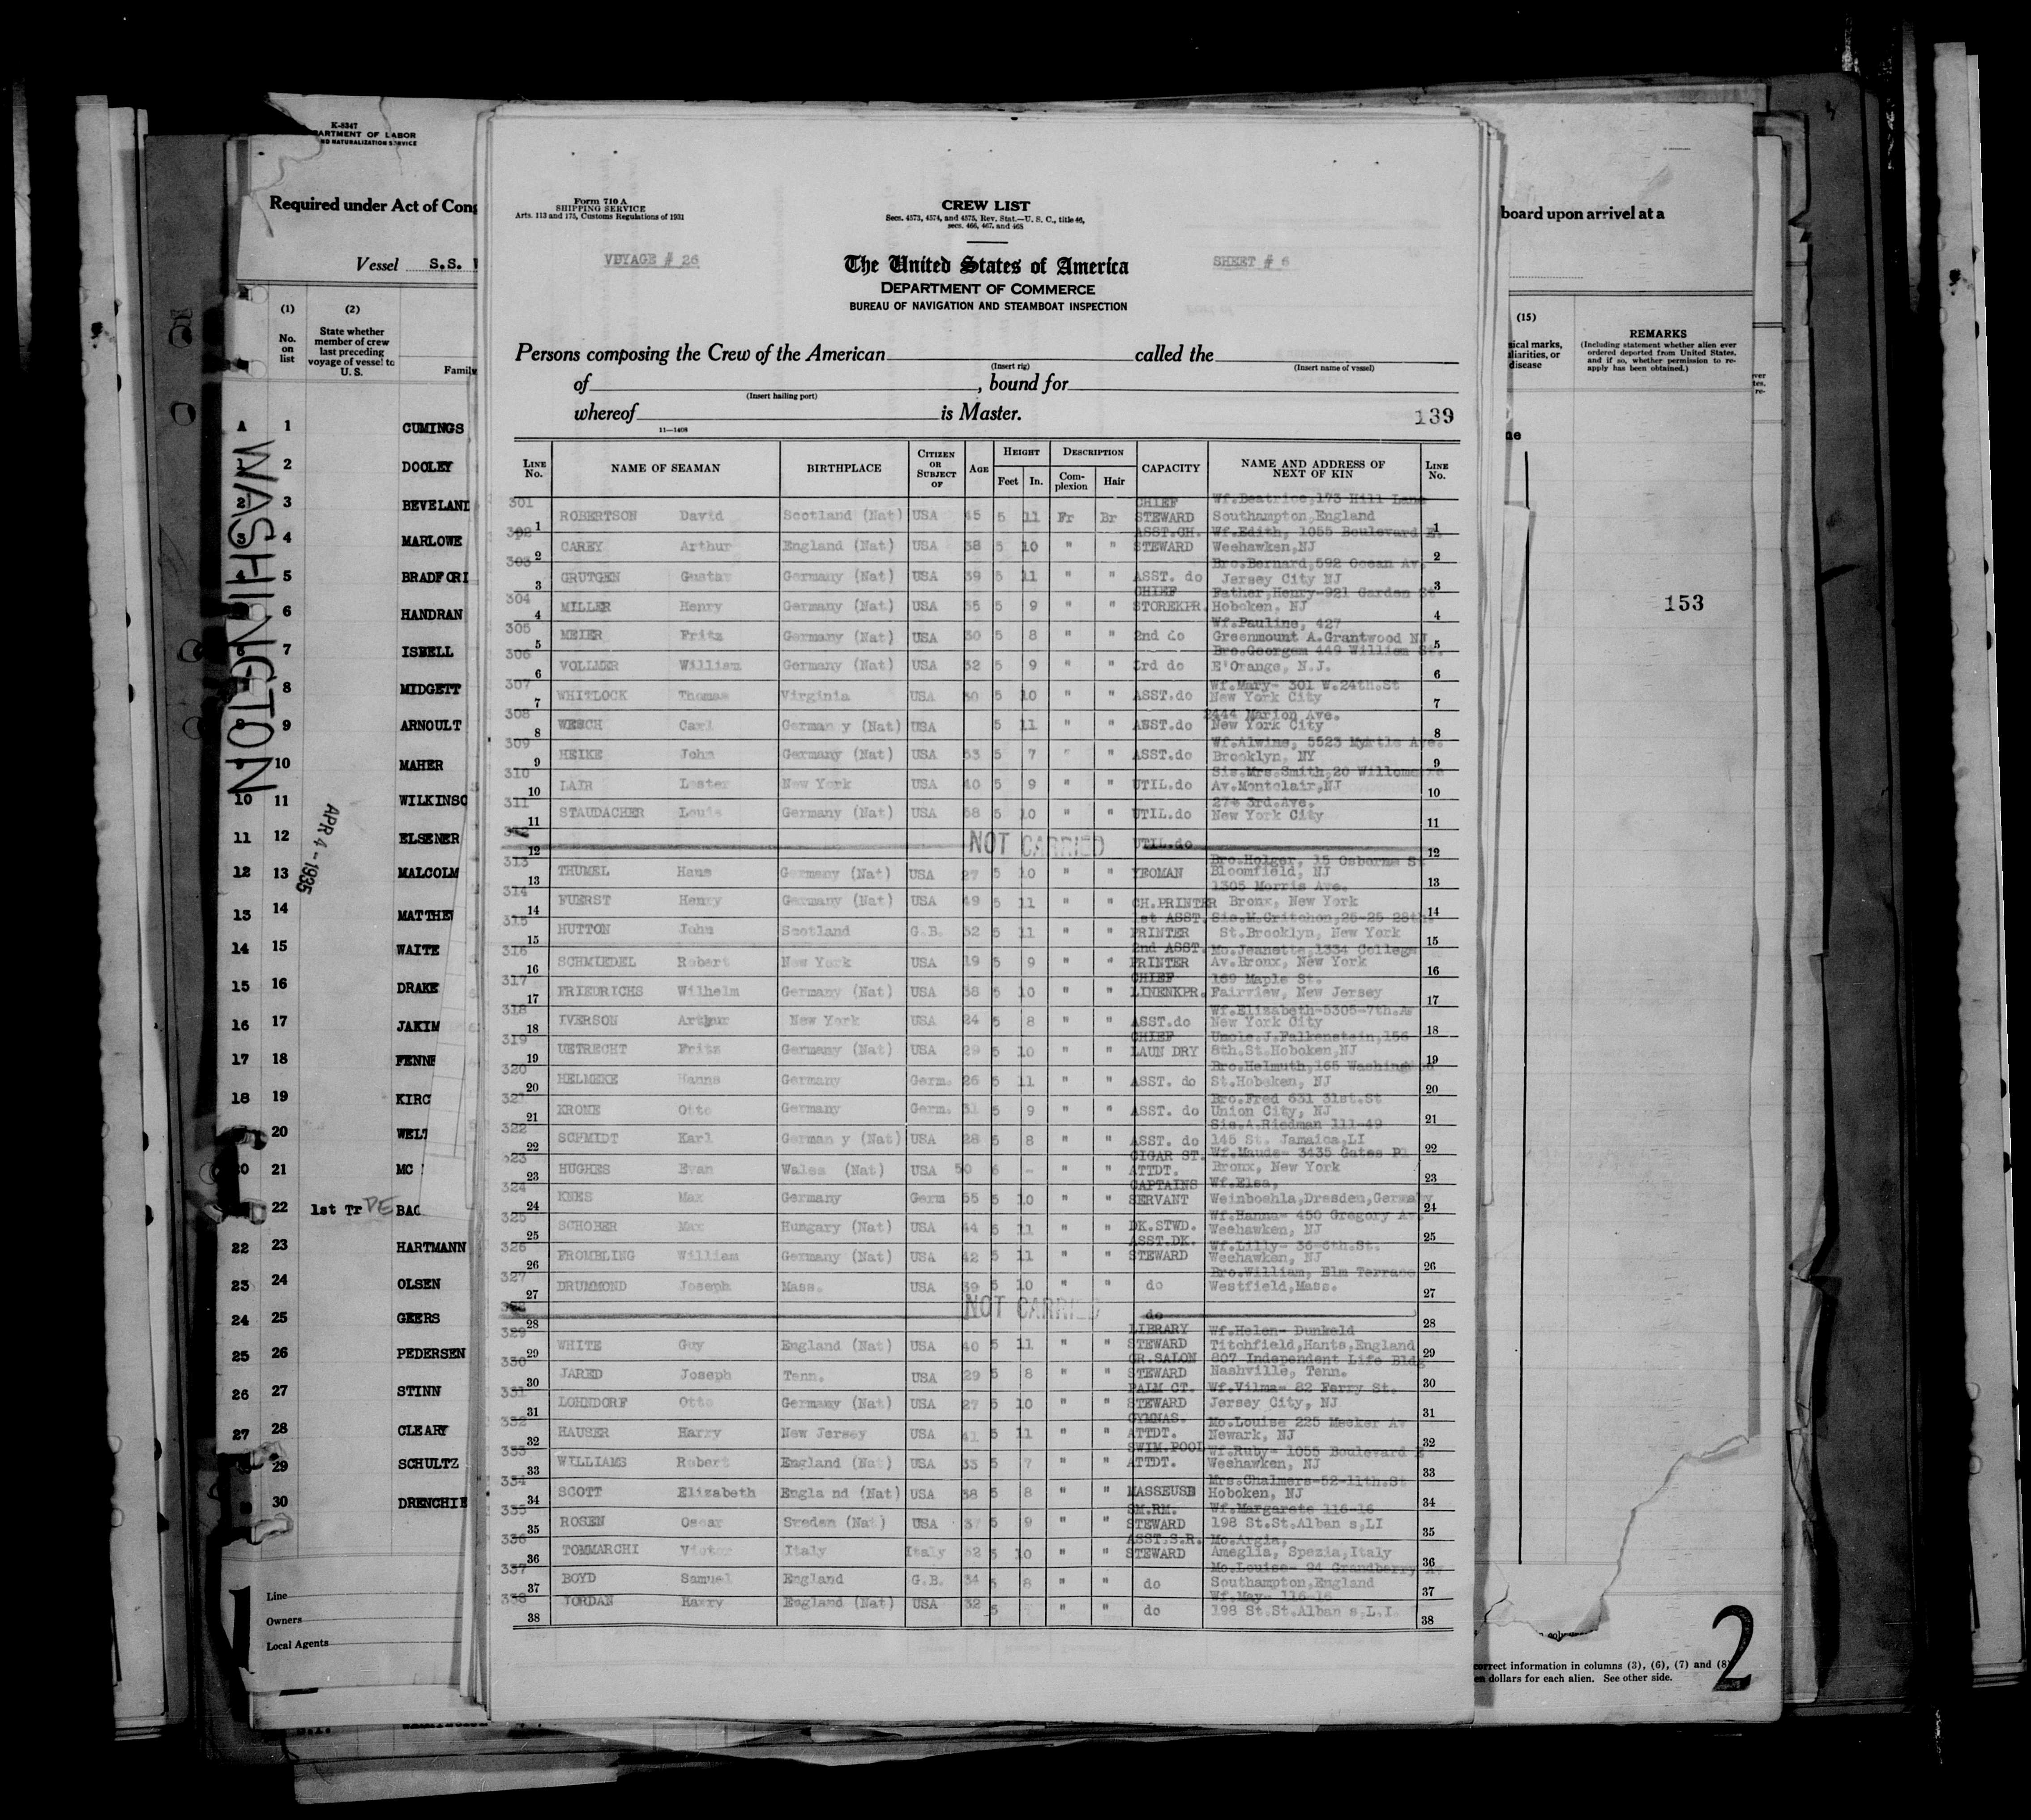 K-8347
ARTMENT OF LABOR
ND NATURALIZATION SERVICE
Required under Act of Cong
Vessel S.S. W
(1) (2)
No. on list
State whether member of crew last preceding voyage of vessel to U. S.
Family
A 1 CUMINGS
2 DOOLEY
2 3 BEVELAND
3 4 MARLOWE
4 5 BRADFORD
6 HANDRAN
7 ISBELL
8 MIDGETT
9 ARNOULT
10 MAHER
10 11 WILKINSO
11 12 ELSENER
12 13 MALCOLM
13 14 MATTHE
14 15 WAITE
15 16 DRAKE
16 17 JAKIM
17 18 FENN
18 19 KIRC
20 WEL
20 21 MC
22 1st Tr DE BAC
22 23 HARTMANN
23 24 OLSEN
24 25 GEERS
25 26 PEDERSEN
26 27 STINN
27 28 CLEARY
29 SCHULTZ
30 DRENCHIE
WASHINGTON
APR 4-1935
Line
Owners
Local Agents
Form 710 A
SHIPPING SERVICE
Arts. 113 and 175, Customs Regulations of 1931
CREW LIST
Secs. 4573, 4574, and 4575, Rev. Stat.—U. S. C., title 46,
secs. 466, 467, and 468
VOYAGE # 26
SHEET # 6
The United States of America
DEPARTMENT OF COMMERCE
BUREAU OF NAVIGATION AND STEAMBOAT INSPECTION
Persons composing the Crew of the American called the
(Insert rig) (Insert name of vessel)
of , bound for
(Insert hailing port)
whereof is Master.
11—1408
139
LINE No. NAME OF SEAMAN BIRTHPLACE CITIZEN OR SUBJECT OF AGE HEIGHT Feet In. DESCRIPTION Complexion Hair CAPACITY NAME AND ADDRESS OF NEXT OF KIN LINE No.
301 CHIEF Wf.Beatrice,173 Hill Lane
1 ROBERTSON David Scotland (Nat) USA 45 5 11 Fr Br STEWARD Southampton,England 1
302 ASST.CH. Wf.Edith, 1055 Boulevard E.
2 CAREY Arthur England (Nat) USA 38 5 10 " " STEWARD Weehawken,NJ 2
303 Bro.Bernard,592 Ocean Av.
3 GRUTGEN Gustav Germany (Nat) USA 39 5 11 " " ASST. do Jersey City NJ 3
304 CHIEF Father,Henry-921 Garden St
4 MILLER Henry Germany (Nat) USA 35 5 9 " " STOREKPR. Hoboken, NJ 4
305 Wf.Pauline, 427
5 MEIER Fritz Germany (Nat) USA 30 5 8 " " 2nd do Greenmount A.Grantwood NJ 5
306 Bro.Georgem 449 William St.
6 VOLLMER William Germany (Nat) USA 32 5 9 " " 3rd do E'Orange, N.J. 6
307 Wf.Mary- 301 W.24th.St
7 WHITLOCK Thomas Virginia USA 30 5 10 " " ASST.do New York City 7
308 2444 Marion Ave.
8 WESCH Carl German y (Nat) USA 5 11 " " ASST.do New York City 8
309 Wf.Alwine, 5523 Myrtle Ave.
9 HEIKE John Germany (Nat) USA 53 5 7 " " ASST.do Brooklyn, NY 9
310 Sis.Mrs.Smith,20
10 LAIR Lester New York USA 40 5 9 " " UTIL.do Av.Montclair,NJ 10
311 274 3rd.Ave.
11 STAUDACHER Louis Germany (Nat) USA 58 5 10 " " UTIL.do New York City 11
12 NOT CARRIED UTIL.do 12
313 Bro.Holger, 15 Osborne St
13 THUMEL Hans Germany (Nat) USA 27 5 10 " " YEOMAN Bloomfield, NJ 13
314 1305 Morris Ave.
14 FUERST Henry Germany (Nat) USA 49 5 11 " " CH.PRINTER Bronx, New York 14
315 1st ASST. Sis.M.Critchon,25-25 28th.
15 HUTTON John Scotland G.B. 32 5 11 " " PRINTER St.Brooklyn, New York 15
316 2nd ASST. Mo.Jeanette,1334 College
16 SCHMIEDEL Robert New York USA 19 5 9 " " PRINTER Av.Bronx, New York 16
317 CHIEF 169 Maple St.
17 FRIEDRICHS Wilhelm Germany (Nat) USA 38 5 10 " " LINENKPR. Fairview, New Jersey 17
318 Wf.Elizabeth-5305-7th.A
18 IVERSON Arthur New York USA 24 5 8 " " ASST.do New York City 18
319 CHIEF Uncle.J.Falkenstein,156
19 UETRECHT Fritz Germany (Nat) USA 29 5 10 " " LAUN DRY 8th.St.Hoboken,NJ 19
320 Bro.Helmuth,165 Washington
20 HELMEKE Hanns Germany Germ. 26 5 11 " " ASST. do St.Hoboken, NJ 20
321 Bro.Fred 631 31st.St
21 KRONE Otto Germany Germ. 31 5 9 " " ASST. do Union City, NJ 21
322 Sis.A.Riedman 111-49
22 SCHMIDT Karl German y (Nat) USA 28 5 8 " " ASST. do 145 St. Jamaica,LI 22
323 CIGAR ST. Wf.Maude- 3435 Gates Pl
23 HUGHES Evan Wales (Nat) USA 50 6 - " " ATTDT. Bronx, New York 23
324 CAPTAINS Wf.Elsa,
24 KNES Max Germany Germ 55 5 10 " " SERVANT Weinboehla,Dresden,Germany 24
325 Wf.Hanna- 450 Gregory Av.
25 SCHOBER Max Hungary (Nat) USA 44 5 11 " " DK.STWD. Weehawken, NJ 25
326 ASST.DK. Wf.Lilly- 36-6th.St.
26 FROMBLING William Germany (Nat) USA 42 5 11 " " STEWARD Weehawken, NJ 26
327 Bro.William, Elm Terrace
27 DRUMMOND Joseph Mass. USA 39 5 10 " " do Westfield,Mass. 27
28 NOT CARRIED do 28
329 LIBRARY Wf.Helen- Dunkeld
29 WHITE Guy England (Nat) USA 40 5 11 " " STEWARD Titchfield,Hants,England 29
330 GR.SALON 807 Independent Life Bldg
30 JARED Joseph Tenn. USA 29 5 8 " " STEWARD Nashville, Tenn. 30
331 PALM CT. Wf.Vilma- 82 Ferry St.
31 LOHNDORF Otto Germany (Nat) USA 27 5 10 " " STEWARD Jersey City, NJ 31
332 GYMNAS. Mo.Louise 225 Meeker Av
32 HAUSER Harry New Jersey USA 41 5 11 " " ATTDT. Newark, NJ 32
333 SWIM.POOL Wf.Ruby- 1055 Boulevard E
33 WILLIAMS Robert England (Nat) USA 33 5 7 " " ATTDT. Weehawken, NJ 33
334 Mrs.Chalmers-52-11th.St
34 SCOTT Elizabeth Engla nd (Nat) USA 38 5 8 " " MASSEUSE Hoboken, NJ 34
335 SM.RM. Wf.Margarete 116-16
35 ROSEN Oscar Sweden (Nat) USA 37 5 9 " " STEWARD 198 St.St.Alban s,LI 35
336 ASST.S.R. Mo.Argia,
36 TOMMARCHI Victor Italy Italy 32 5 10 " " STEWARD Ameglia, Spezia,Italy 36
337 Mo.Louise- 24 Grandberry Av
37 BOYD Samuel England G.B. 34 5 8 " " do Southampton,England 37
338 Wf.May- 116-16
38 JORDAN Harry England (Nat) USA 32 5 " " do 198 St.St.Alban s,L.I. 38
board upon arrival at a
(15)
sical marks, uliarities, or disease
REMARKS
(Including statement whether alien ever ordered deported from United States, and if so, whether permission to reapply has been obtained.)
ne
153
correct information in columns (3), (6), (7) and (8)
en dollars for each alien. See other side.
2